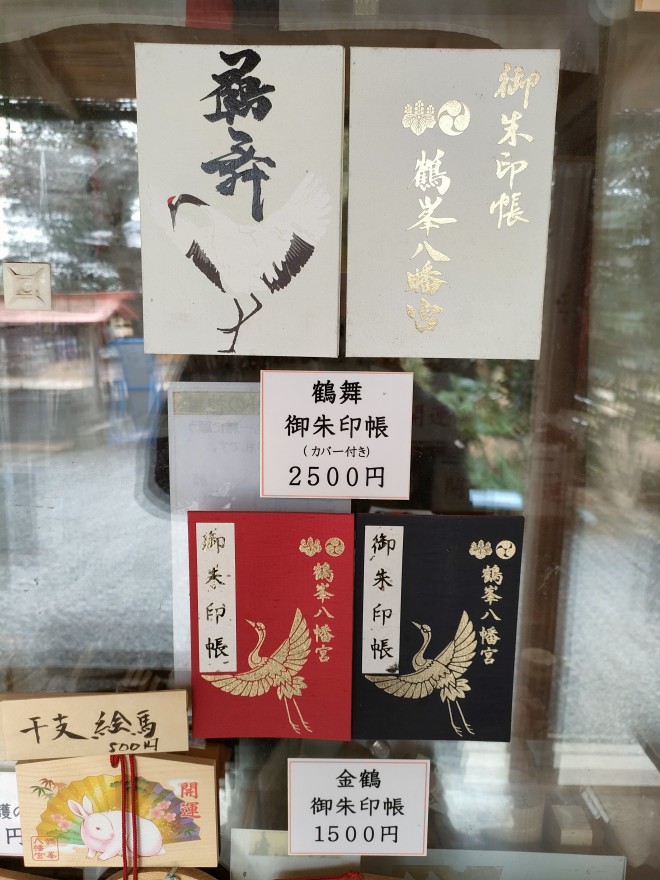 鶴舞
御朱印帳
鶴峯八幡宮
鶴舞
御朱印帳
(カバー付き)
2500円
御朱印帳
鶴峯八幡宮
御朱印帳
鶴峯八幡宮
干支 絵馬
500円
開運
金鶴
御朱印帳
1500円
護の
円